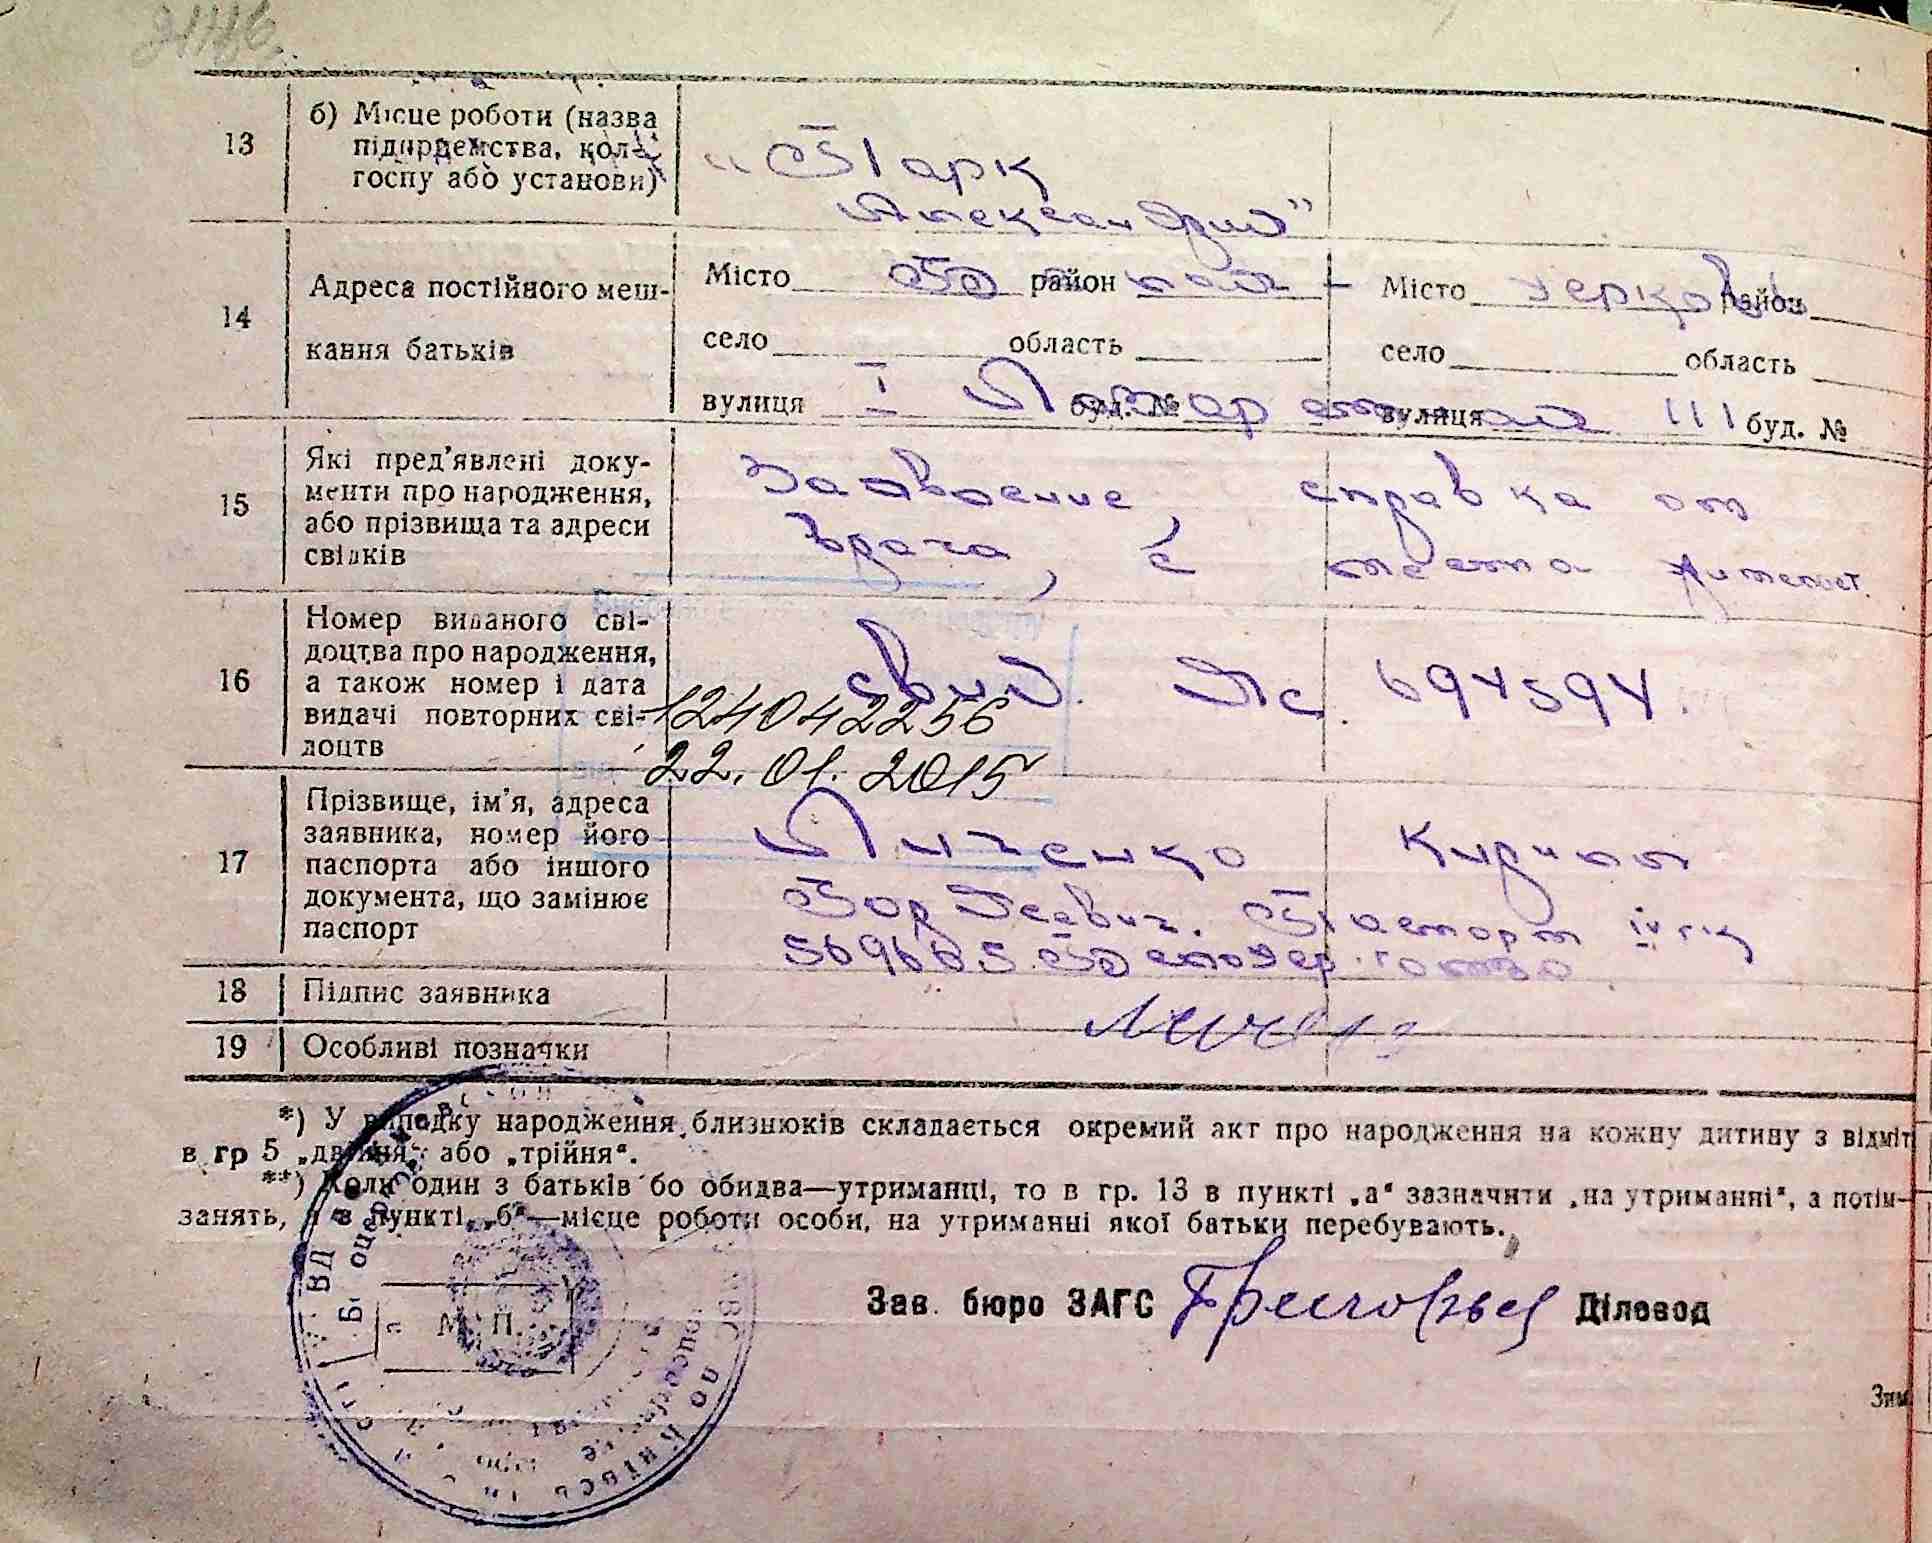 13
б) Місце роботи (назва
підприємства, кол-
госпу або установи)
„Парк
Александрия"
14
Адреса постійного меш-
кання батьків
Місто район Місто Церковь район
село область село область
вулиця I буд. № вулиця III буд. №
15
Які пред'явлені доку-
менти про народження,
або прізвища та адреси
свідків
Заявление, справка от
врача, с места жительст.
16
Номер виданого сві-
доцтва про народження,
а також номер і дата
видачі повторних сві-
доцтв
свид. 694594.
124042256
22.01.2015
17
Прізвище, ім'я, адреса
заявника, номер його
паспорта або іншого
документа, що замінює
паспорт
Личенко Кирилл
Гордеевич. Паспорт IV
569665
18
Підпис заявника
19
Особливі позначки
*) У випадку народження близнюків складається окремий акт про народження на кожну дитину з відміт
в гр 5 „двійня" або „трійня".
**) Коли один з батьків бо обидва—утриманці, то в гр. 13 в пункті „а" зазначити „на утриманні", а потім—
занять, а в пункті „б"—місце роботи особи, на утриманні якої батьки перебувають.
М. П.
Зав. бюро ЗАГС Діловод